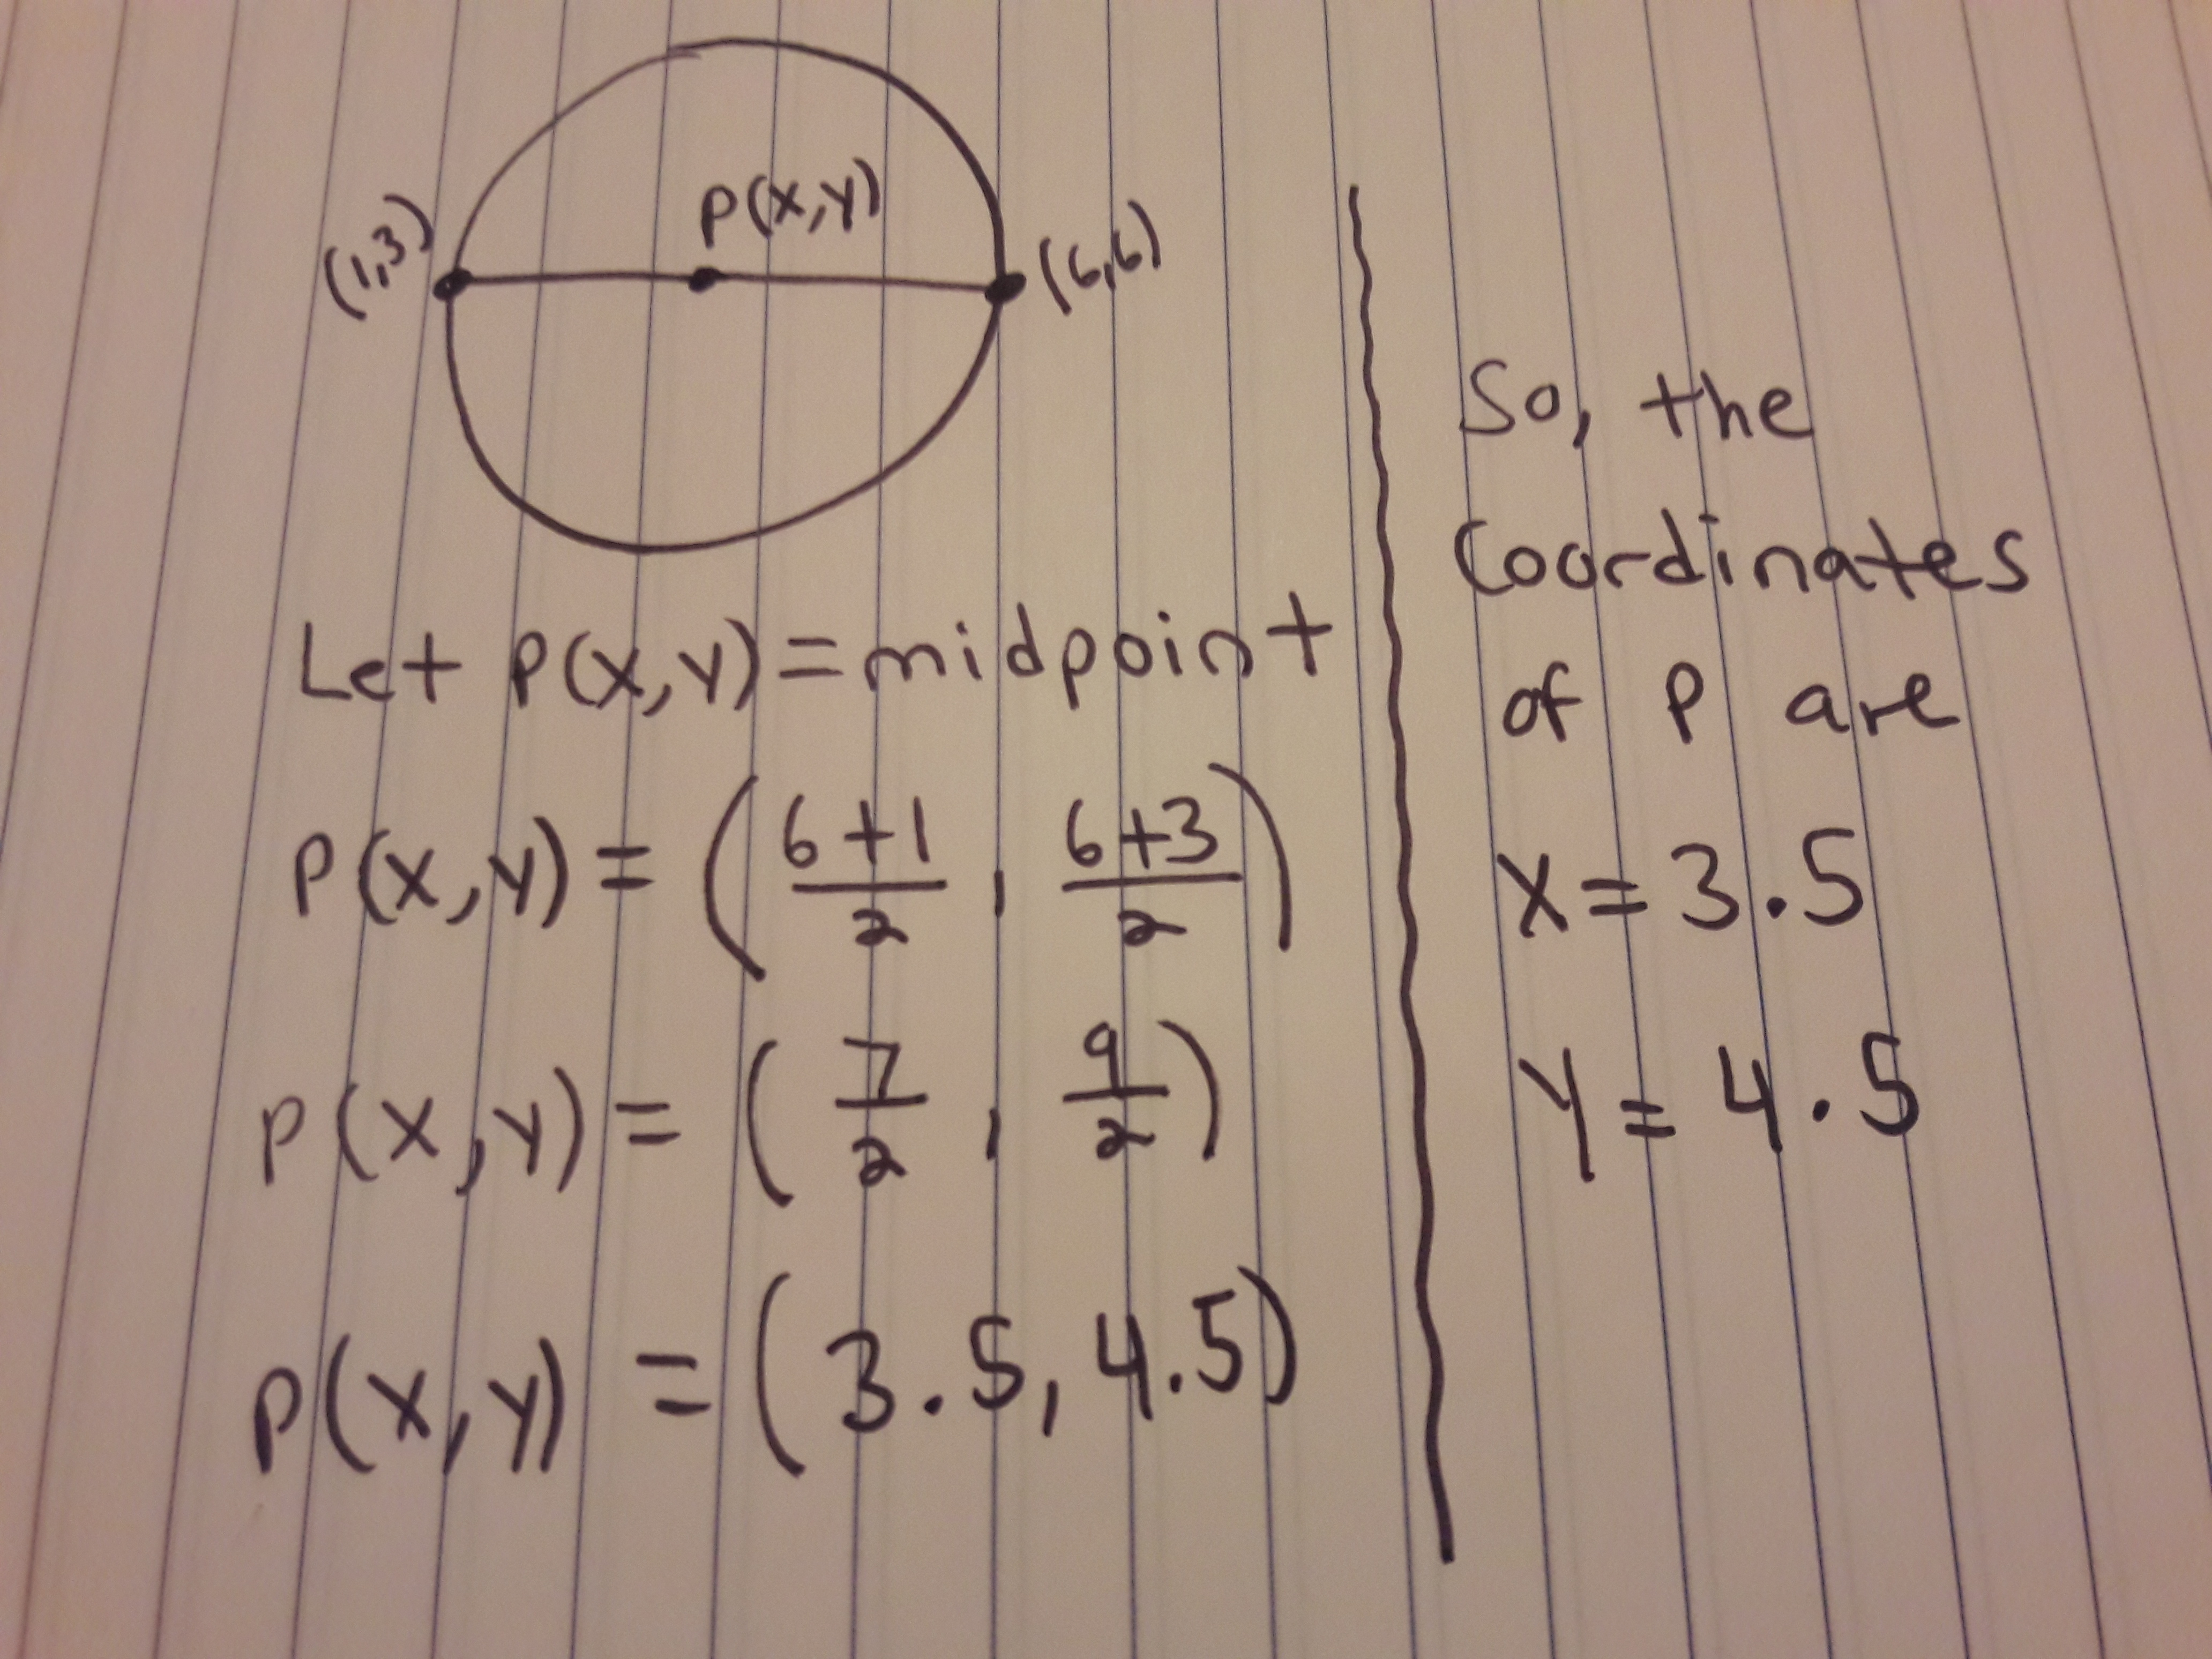 P(x,y)
(1,3)
(6,6)
Let P(x,y)=midpoint
P(x,y) = (6+1/2, 6+3/2)
P(x,y) = (7/2, 9/2)
P(x,y) = (3.5, 4.5)
So, the
Coordinates
of P are
X = 3.5
Y = 4.5